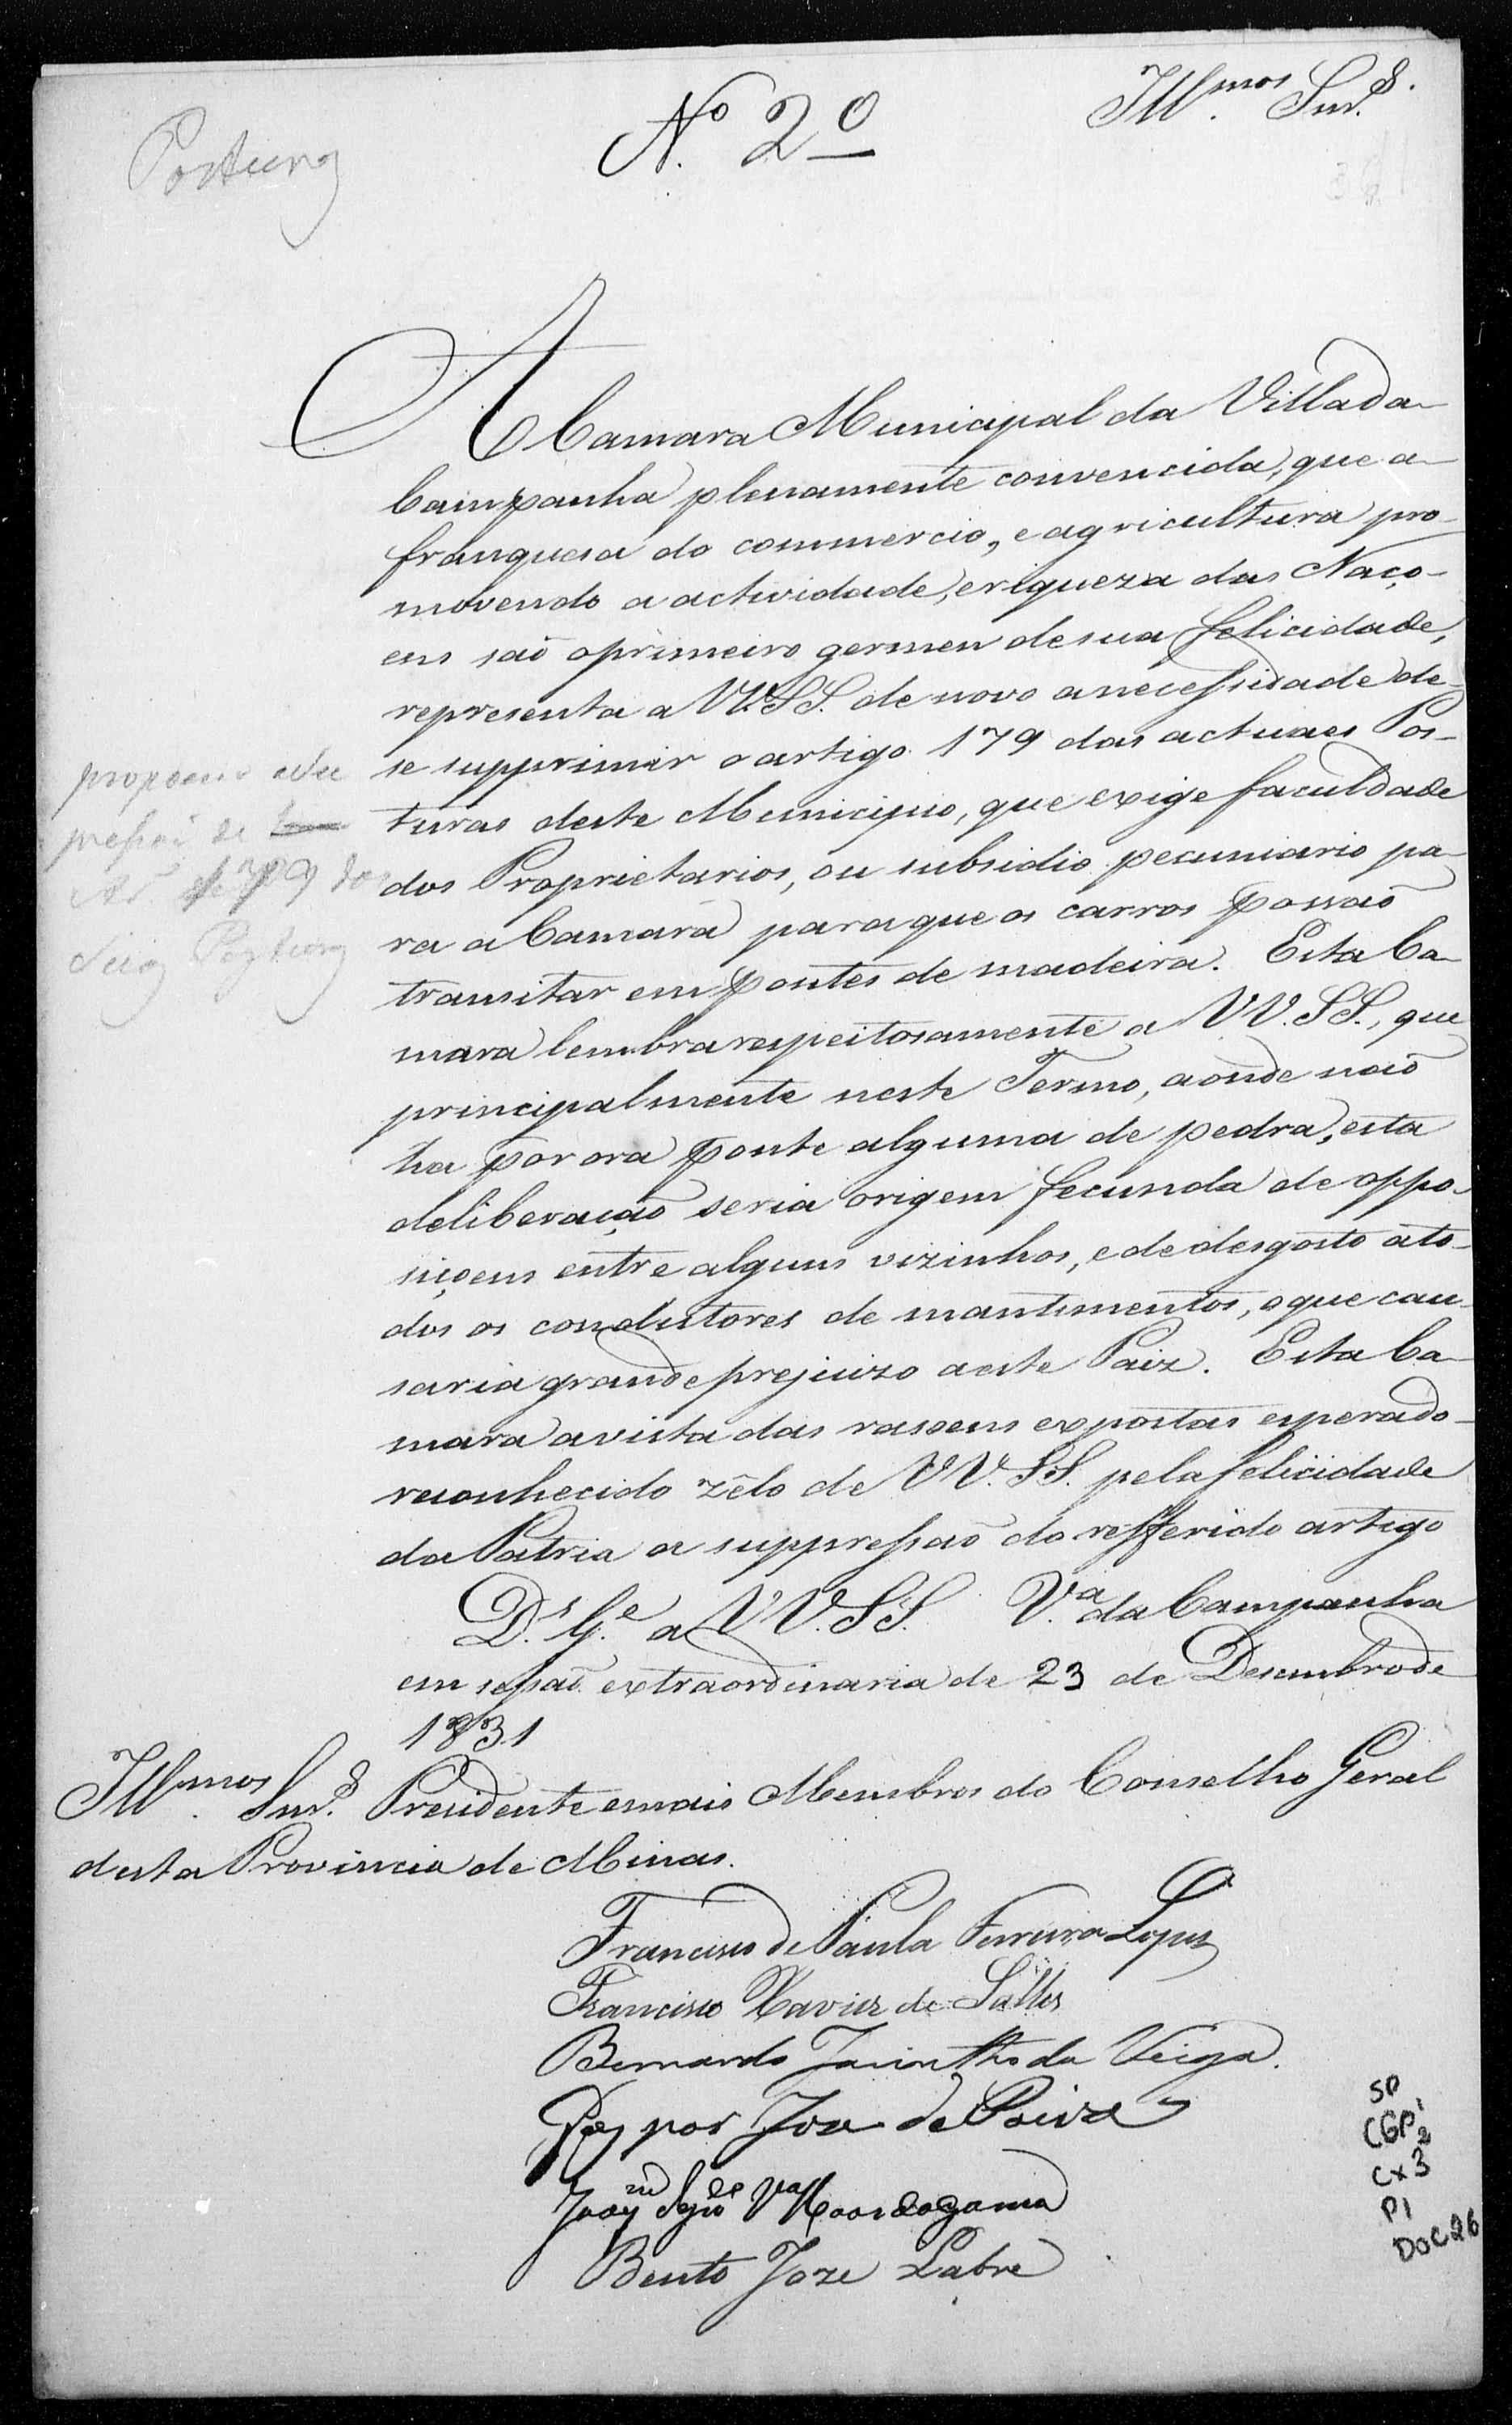 Posturas
N.º 2º
Ill.mos Snr.s
A Camara Municipal da Villa da
Campanha plenamente convencida, que a
franquesa do commercio, e agricultura pro-
movendo a actividade, e riqueza das Naço-
ens saõ o primeiro germen de sua felicidade,
representa a VV.SS. de novo a necessidade de
se supprimir o artigo 179 das actuaes Pos-
turas deste Municipio, que exige faculdade
dos Proprietarios, ou subsidio pecuniario pa-
ra a Camara para que os carros possaõ
transitar em pontes de madeira. Esta Ca-
mara lembra respeitosamente a VV.SS., que
principalmente neste Termo, aonde naõ
ha por ora ponte alguma de pedra, esta
deliberaçaõ seria origem fecunda de oppo-
siçoens entre alguns vizinhos, e de desgosto a to-
dos os condutores de mantimentos, o que cau-
saria grande prejuizo a este Paiz. Esta Ca-
mara a vista das rasoens expostas espera do
reconhecido zêlo de VV.SS. pela felicidade
da Patria a suppressaõ do refferido artigo
D.s G.e a VV.SS. V.a da Campanha
em sessaõ extraordinaria de 23 de Desembro de
1831
Ill.mos Snr.s Presidente e mais Membros do Conselho Geral
desta Provincia de Minas.
propoem a su
pressaõ de
Ar. 179 das
suas Posturas
Francisco de Paula Ferreira Lopes
Francisco Xavier de Salles
Bernardo Jacintho da Veiga.
José de Paiva
Bento Joze Labre
SP
CGP1 2
Cx3
P1
DOC26